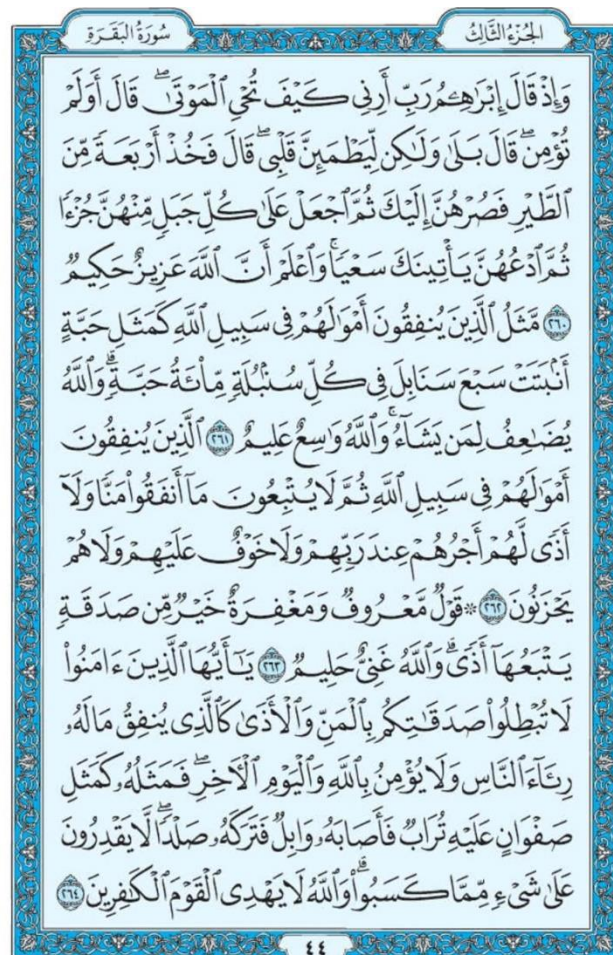 الجُزْءُ الثَّالِثُ
سُورَةُ البَقَرَةِ
وَإِذْ قَالَ إِبْرَٰهِـۧمُ رَبِّ أَرِنِى كَيْفَ تُحْىِ ٱلْمَوْتَىٰ ۖ قَالَ أَوَلَمْ
تُؤْمِن ۖ قَالَ بَلَىٰ وَلَٰكِن لِّيَطْمَئِنَّ قَلْبِى ۖ قَالَ فَخُذْ أَرْبَعَةً مِّنَ
ٱلطَّيْرِ فَصُرْهُنَّ إِلَيْكَ ثُمَّ ٱجْعَلْ عَلَىٰ كُلِّ جَبَلٍ مِّنْهُنَّ جُزْءًا
ثُمَّ ٱدْعُهُنَّ يَأْتِينَكَ سَعْيًا ۚ وَٱعْلَمْ أَنَّ ٱللَّهَ عَزِيزٌ حَكِيمٌ
٢٦٠ مَّثَلُ ٱلَّذِينَ يُنفِقُونَ أَمْوَٰلَهُمْ فِى سَبِيلِ ٱللَّهِ كَمَثَلِ حَبَّةٍ
أَنۢبَتَتْ سَبْعَ سَنَابِلَ فِى كُلِّ سُنۢبُلَةٍ مِّا۟ئَةُ حَبَّةٍ ۗ وَٱللَّهُ
يُضَٰعِفُ لِمَن يَشَآءُ ۗ وَٱللَّهُ وَٰسِعٌ عَلِيمٌ ٢٦١ ٱلَّذِينَ يُنفِقُونَ
أَمْوَٰلَهُمْ فِى سَبِيلِ ٱللَّهِ ثُمَّ لَا يُتْبِعُونَ مَآ أَنفَقُوا۟ مَنًّا وَلَآ
أَذًى لَّهُمْ أَجْرُهُمْ عِندَ رَبِّهِمْ وَلَا خَوْفٌ عَلَيْهِمْ وَلَا هُمْ
يَحْزَنُونَ ٢٦٢ ۞ قَوْلٌ مَّعْرُوفٌ وَمَغْفِرَةٌ خَيْرٌ مِّن صَدَقَةٍ
يَتْبَعُهَآ أَذًى ۗ وَٱللَّهُ غَنِىٌّ حَلِيمٌ ٢٦٣ يَٰٓأَيُّهَا ٱلَّذِينَ ءَامَنُوا۟
لَا تُبْطِلُوا۟ صَدَقَٰتِكُم بِٱلْمَنِّ وَٱلْأَذَىٰ كَٱلَّذِى يُنفِقُ مَالَهُۥ
رِئَآءَ ٱلنَّاسِ وَلَا يُؤْمِنُ بِٱللَّهِ وَٱلْيَوْمِ ٱلْءَاخِرِ ۖ فَمَثَلُهُۥ كَمَثَلِ
صَفْوَانٍ عَلَيْهِ تُرَابٌ فَأَصَابَهُۥ وَابِلٌ فَتَرَكَهُۥ صَلْدًا ۖ لَّا يَقْدِرُونَ
عَلَىٰ شَىْءٍ مِّمَّا كَسَبُوا۟ ۗ وَٱللَّهُ لَا يَهْدِى ٱلْقَوْمَ ٱلْكَٰفِرِينَ ٢٦٤
٤٤